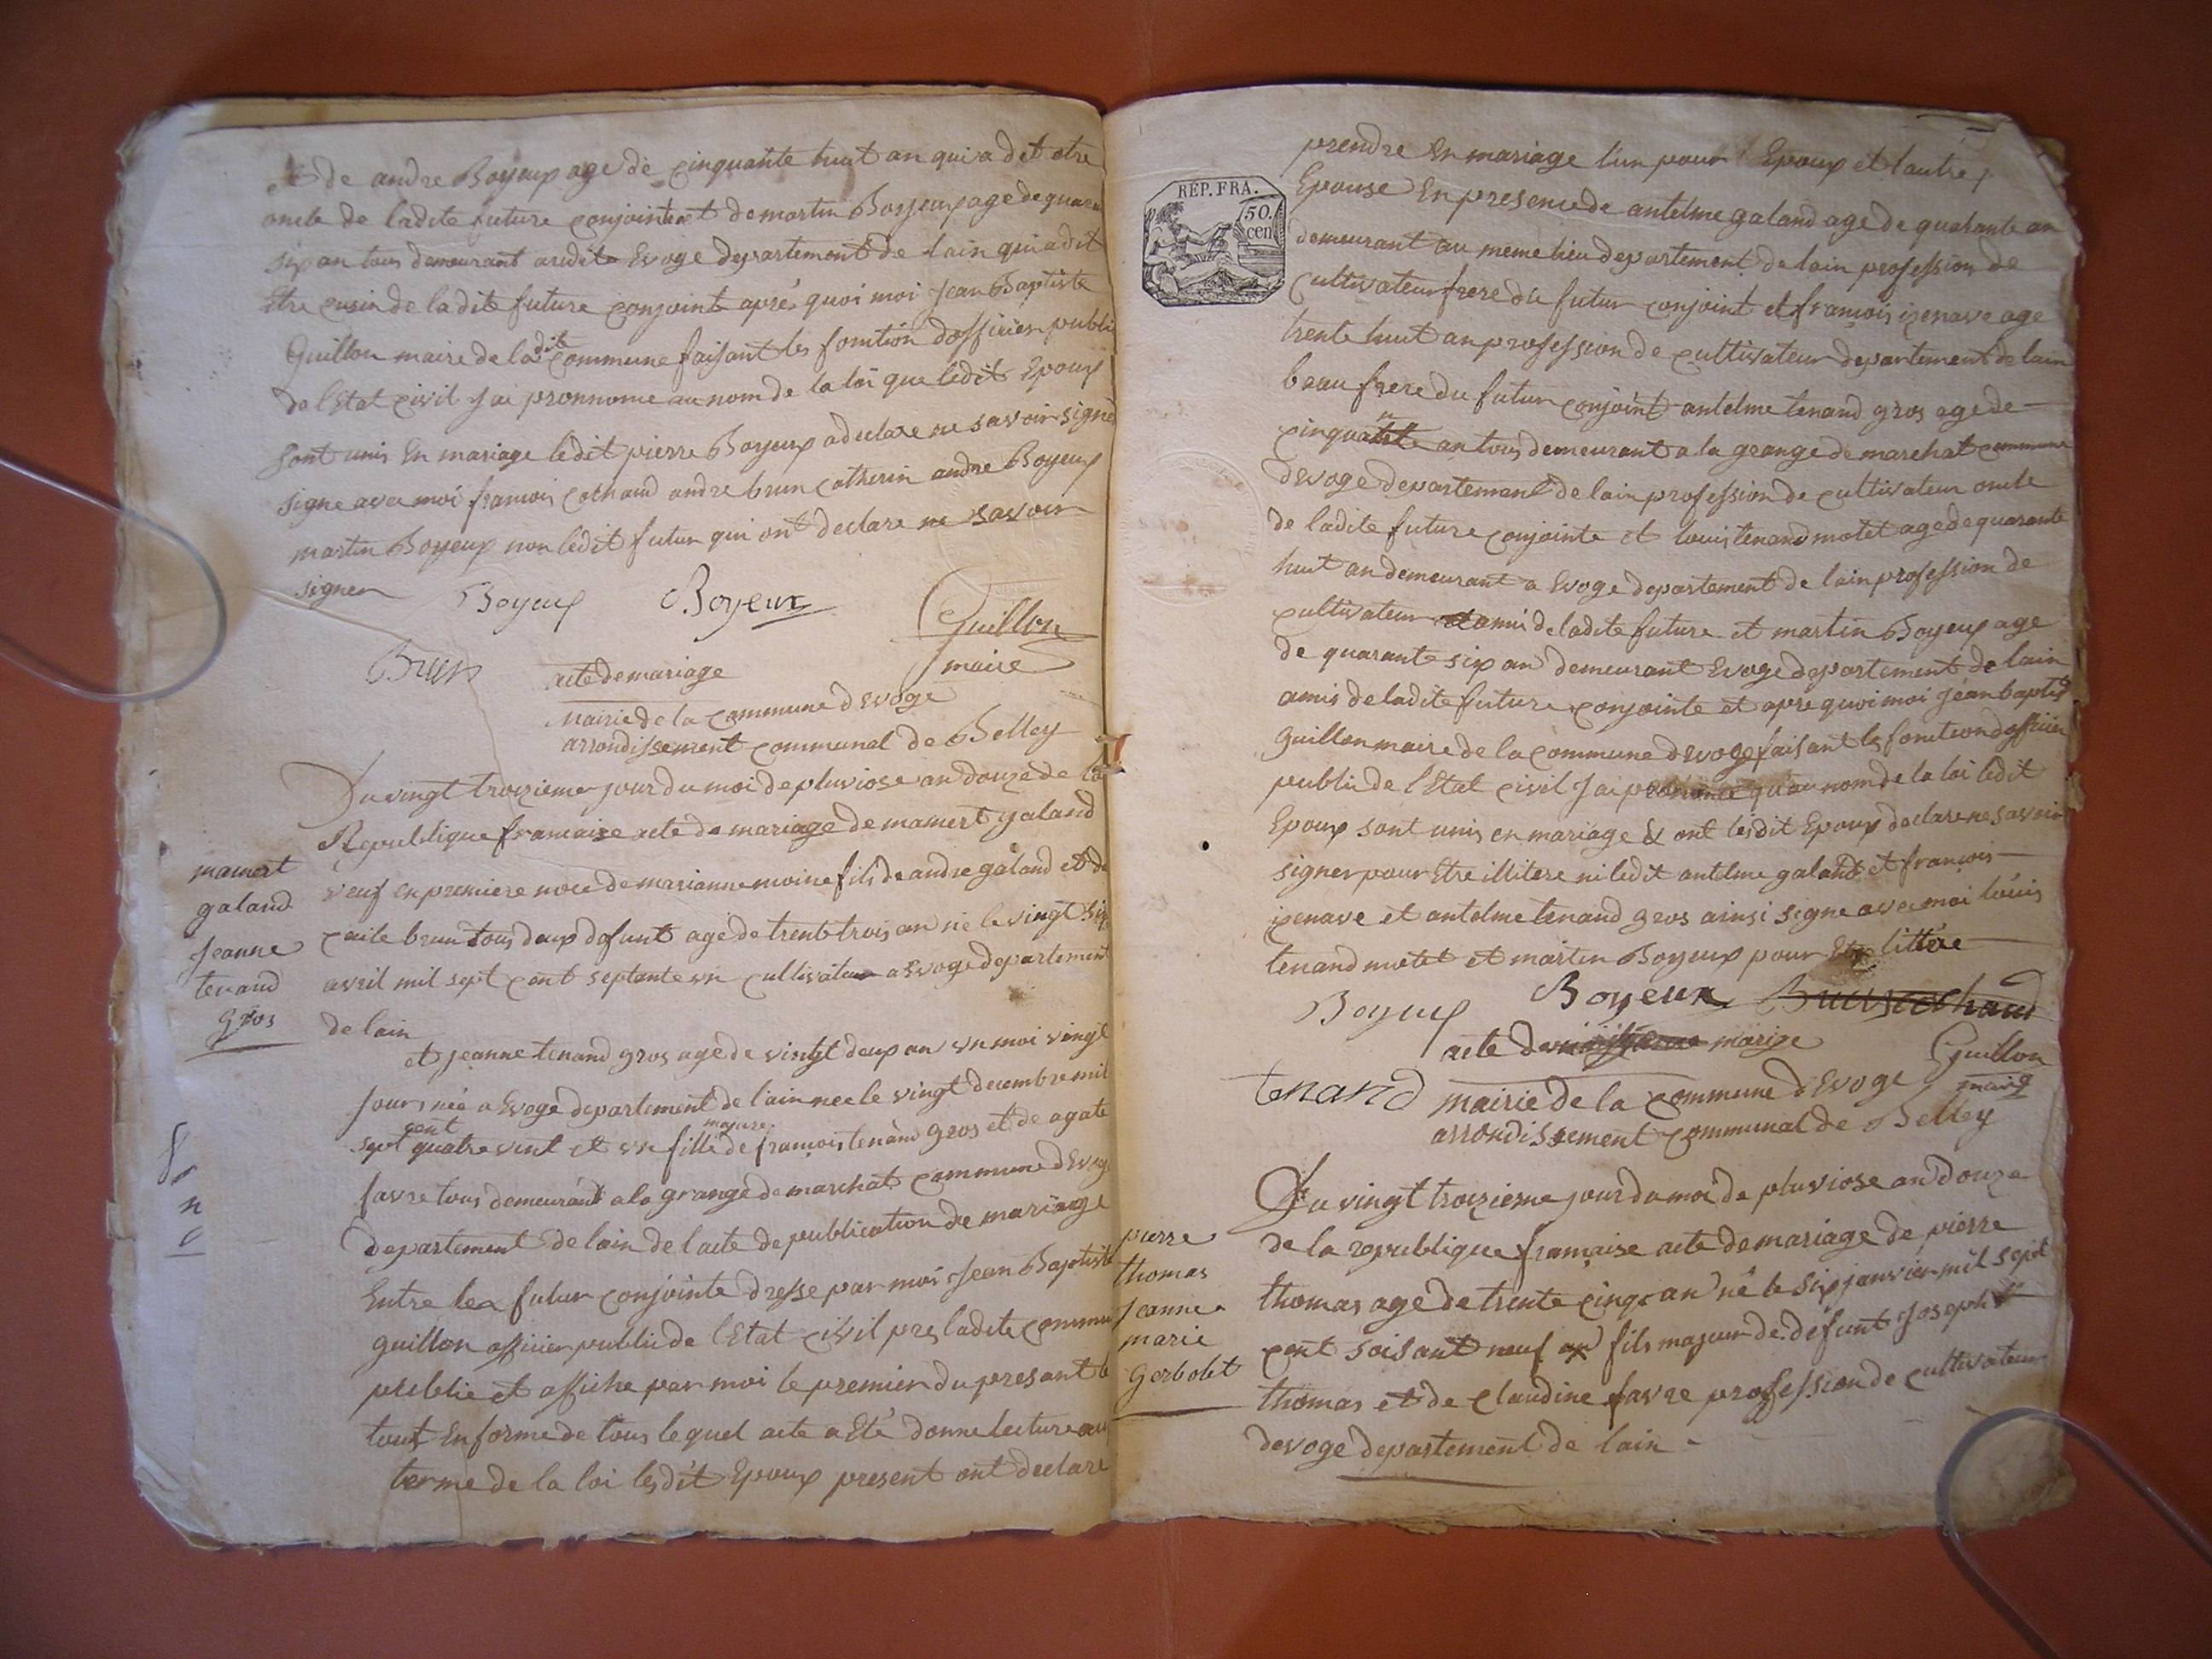 de andre Boyeux age de cinquante huit an qui a dit etre
oncle de ladite future conjointe et de martin Boyeux age de quaran
six an tous demeurant audit Evoge departement de lain qui a dit
Etre cusin de la dite future conjoint aprés quoi moi Jean Baptiste
Guillon maire de ladit commune faisant les fonction dofficier publi
de l'Etat civil J'ai pronnonce au nom de la loi que ledit Epoux
sont unis En mariage ledit pierre Boyeux a declare ne savoir signé
signe avec moi francois cochand andre brun catherin andre Boyeux
martin Boyeux non ledit futur qui ont declare ne savoir
signer Boyeux Boyeux Guillon
Brun maire
acte de mariage
Mairie de la commune d Evoge
arrondissement communal de Belley
Du vingt troizieme jour du moi de pluviose an douze de la
Republique francaise acte de mariage de mamert galand
mamert
galand
Jeanne
tenand
Gros
veuf en premiere noce de marianne moine fils de andre galand et de
brun tous deux defunt age de trente trois an né le vingt six
avril mil sept cent septante un cultivateur a Evoge departement
de lain
et jeanne tenand gros age de vintgt deux an un moi vingt
jours née a Evoge departement de l'ain nee le vingt decembre mil
sept cent quatre vint et un fille majure de francois tenand gros et de agate
favre tous demeurant a la grange de marchat commune dEvoge
departement de lain de l'acte de publication de mariage
Entre les futur conjointe dresse par moi Jean Baptiste
guillon officier public de l'Etat civil pres ladite commu
publie et affiche par moi le premier du presant
tout En forme de tous le quel acte a Eté donne lecture aux
terme de la loi lesdit Epoux present ont declare
RÉP. FRA.
50.
cen
prendre En mariage l'un pour Epoux et lautre
Epouse En presence de antelme galand age de quarante an
demeurant au meme lieu departement de lain profession de
cultivateur frere du futur conjoint et francois izenave age
trente huit an profession de cultivateur departement de lain
beau frere du futur conjoint antelme tenand gros age de
cinquante an tous demeurant a la grange de marchat commune
devoge departement de lain profession de cultivateur oncle
de ladite future conjointe et louis tenand motet age de quarante
huit an demeurant a Evoge departement de lain profession de
cultivateur amis de ladite future et martin Boyeux age
de quarante six an demeurant Evoge departement de lain
amis de ladite future conjointe et apre quoi moi Jean baptist
guillon maire de la commune devoge faisant les fonction dofficier
public de l'Etat civil J'ai prononce qu'au nom de la loi ledit
Epoux sont unis en mariage & ont lesdit Epoux declare ne savoir
signer pour Etre illitere ni ledit antelme galand et francois
izenave et antelme tenand gros ainsi signe avec moi louis
tenand motet et martin Boyeux pour Etre littere
Boyeux Boyeux Brun cochand
acte de marige Guillon
tenand mairie de la commune d Evoge maire
arrondissement communal de Belley
Du vingt troizieme jour du moi de pluviose an douze
de la republique francaise acte de mariage de pierre
pierre
thomas
Jeanne
marie
Gerbolet
thomas age de trente cinq an né le six janvier mil sept
cent soisant neuf fils majeur de defunt Joseph
thomas et de Claudine favre profession de cultivateur
devoge departement de lain